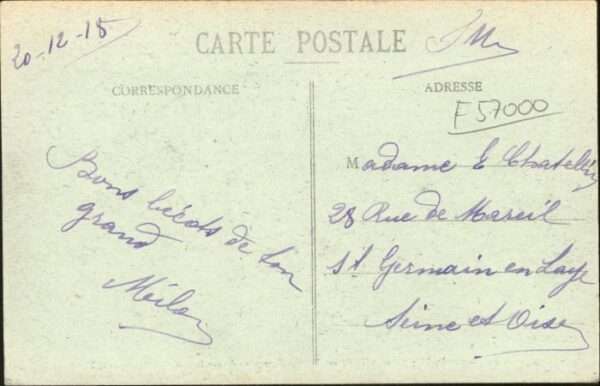 20-12-18
CARTE POSTALE
F.M.
CORRESPONDANCE
ADRESSE
F57000
Bons bécots de ton
grand
Madame E Chatellin
28 Rue de Mareil
St Germain en Laye
Seine et Oise